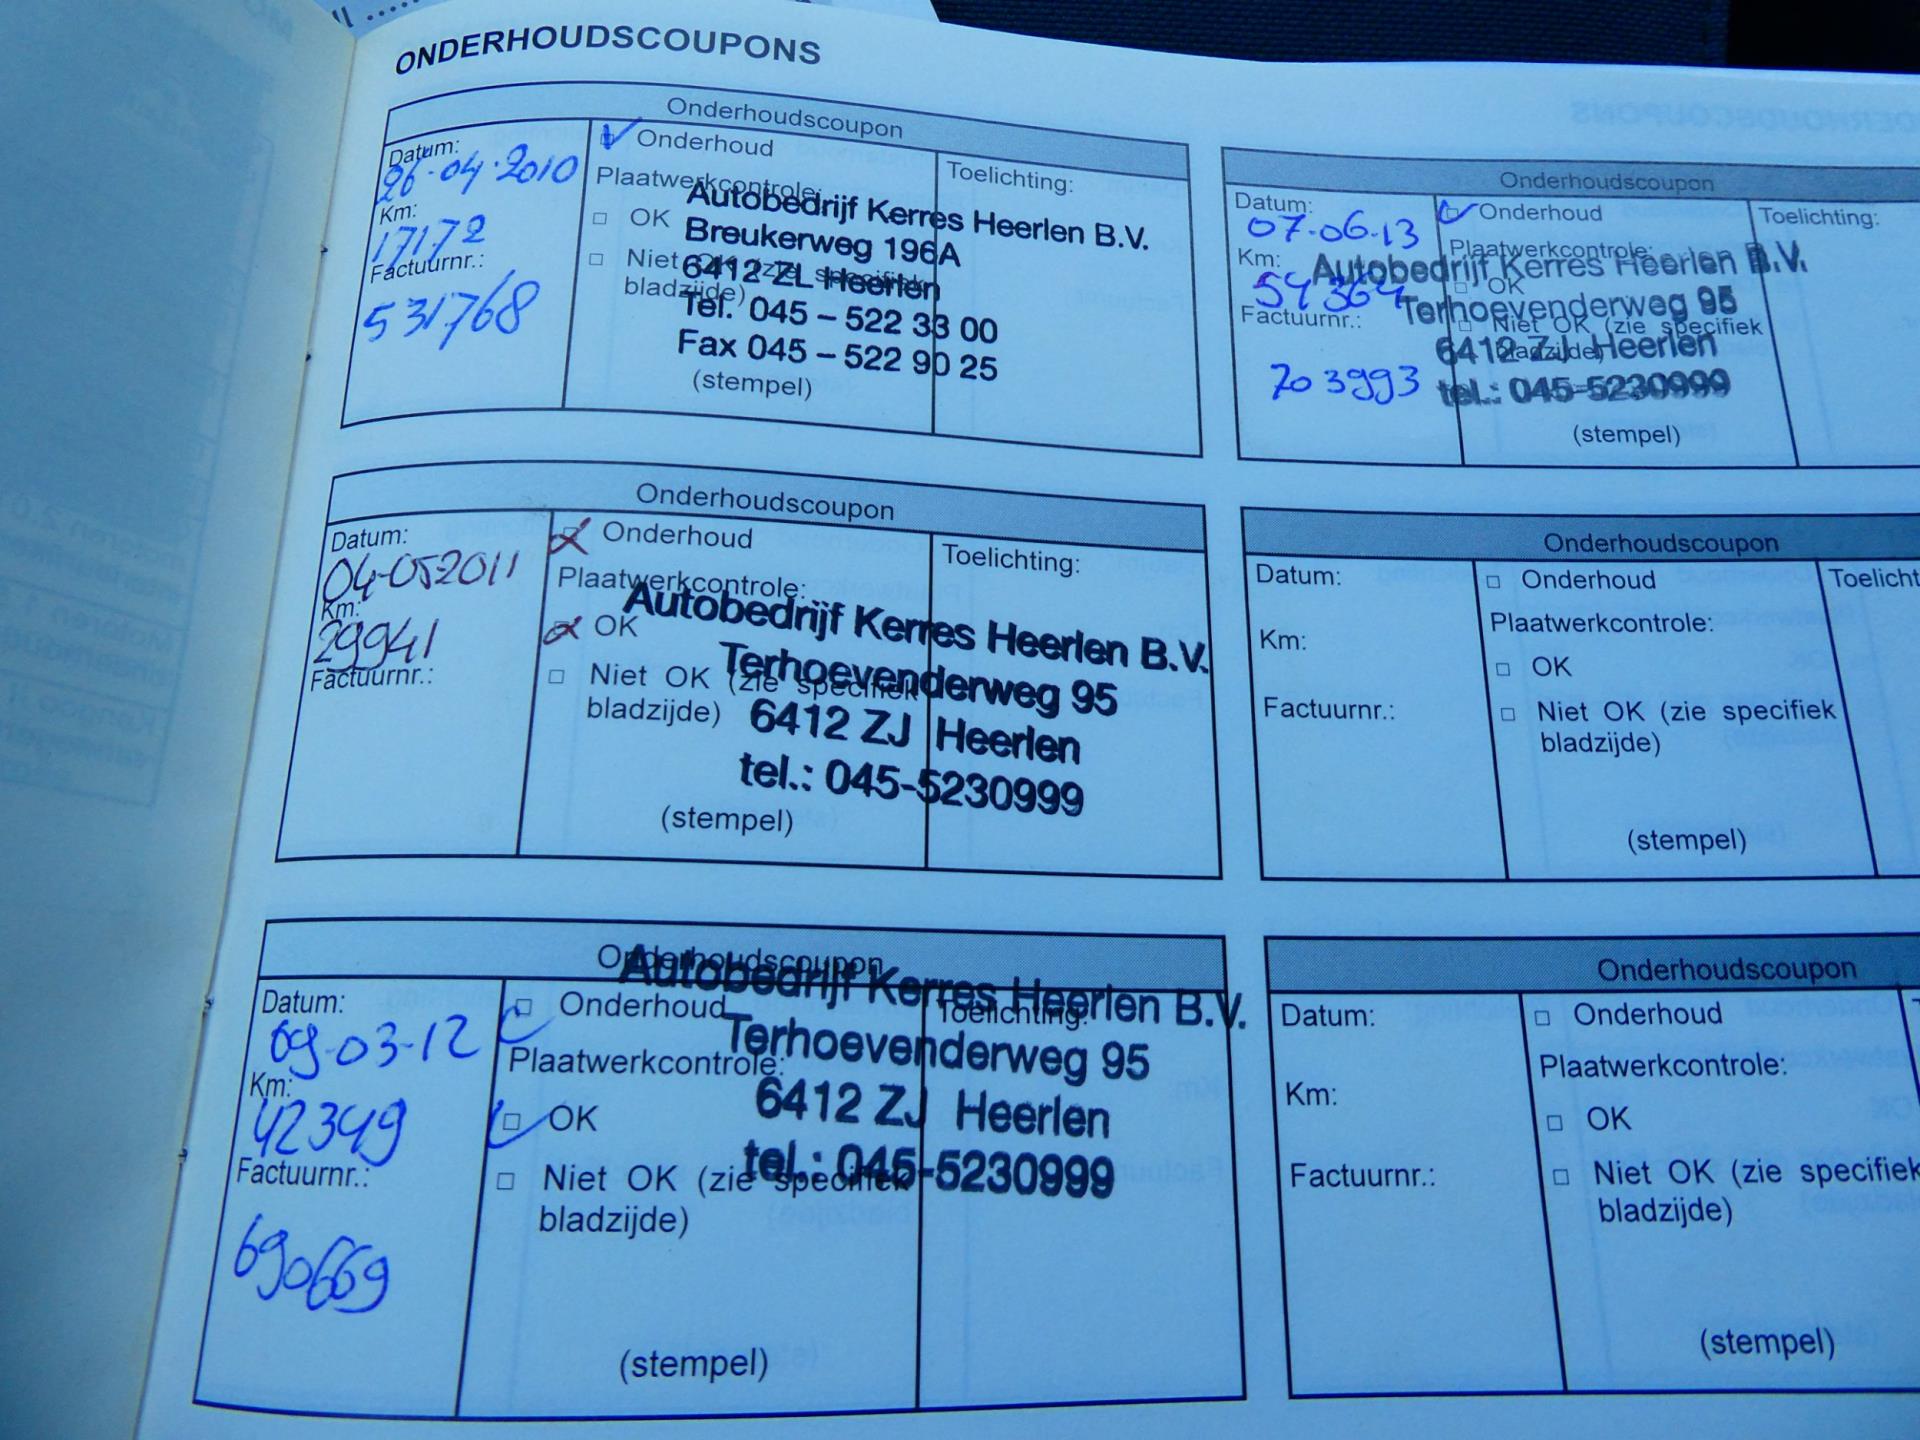 ONDERHOUDSCOUPONS
Onderhoudscoupon
Datum:
26-04-2010
Km:
17172
Factuurnr.:
531768
Onderhoud
Plaatwerkcontrole:
OK
Niet OK (zie specifiek
bladzijde)
Toelichting:
Autobedrijf Kerres Heerlen B.V.
Breukerweg 196A
6412 ZL Heerlen
Tel. 045 – 522 33 00
Fax 045 – 522 90 25
(stempel)
Onderhoudscoupon
Datum:
04-05-2011
Km:
29941
Factuurnr.:
Onderhoud
Plaatwerkcontrole:
OK
Niet OK (zie specifiek
bladzijde)
Toelichting:
Autobedrijf Kerres Heerlen B.V.
Terhoevenderweg 95
6412 ZJ Heerlen
tel.: 045-5230999
(stempel)
Onderhoudscoupon
Datum:
09-03-12
Km:
42349
Factuurnr.:
690669
Onderhoud
Plaatwerkcontrole:
OK
Niet OK (zie specifiek
bladzijde)
Toelichting:
Autobedrijf Kerres Heerlen B.V.
Terhoevenderweg 95
6412 ZJ Heerlen
tel.: 045-5230999
(stempel)
Onderhoudscoupon
Datum:
07-06-13
Km:
54364
Factuurnr.:
703993
Onderhoud
Plaatwerkcontrole:
OK
Niet OK (zie specifiek
bladzijde)
Toelichting:
Autobedrijf Kerres Heerlen B.V.
Terhoevenderweg 95
6412 ZJ Heerlen
tel.: 045-5230999
(stempel)
Onderhoudscoupon
Datum:
Km:
Factuurnr.:
Onderhoud
Plaatwerkcontrole:
OK
Niet OK (zie specifiek
bladzijde)
Toelicht
(stempel)
Onderhoudscoupon
Datum:
Km:
Factuurnr.:
Onderhoud
Plaatwerkcontrole:
OK
Niet OK (zie specifiek
bladzijde)
(stempel)